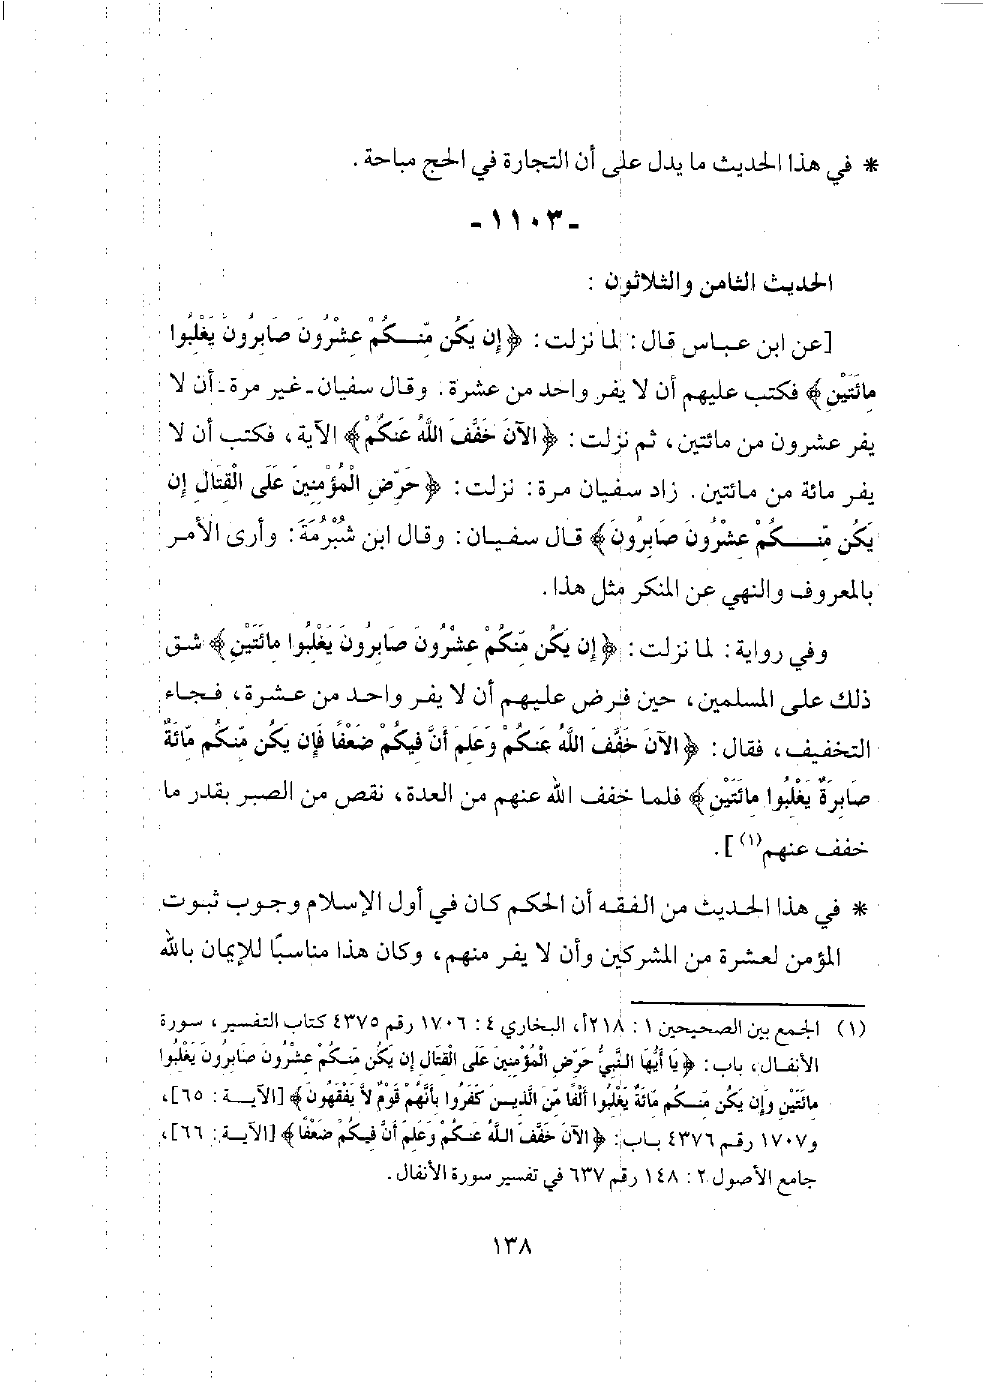 * في هذا الحديث ما يدل على أن التجارة في الحج مباحة .
- ١١٠٣ -
الحديث الثامن والثلاثون :
[عن ابن عباس قال : لما نزلت : ﴿إِن يَكُن مِّنكُمْ عِشْرُونَ صَابِرُونَ يَغْلِبُوا
مِائَتَيْنِ﴾ فكتب عليهم أن لا يفر واحد من عشرة . وقال سفيان - غير مرة - أن لا
يفر عشرون من مائتين ، ثم نزلت : ﴿الآنَ خَفَّفَ اللَّهُ عَنكُمْ﴾ الآية ، فكتب أن لا
يفر مائة من مائتين . زاد سفيان مرة : نزلت : ﴿حَرِّضِ الْمُؤْمِنِينَ عَلَى الْقِتَالِ إِن
يَكُن مِّنكُمْ عِشْرُونَ صَابِرُونَ﴾ قال سفيان : وقال ابن شُبْرُمَةَ : وأرى الأمر
بالمعروف والنهي عن المنكر مثل هذا .
وفي رواية : لما نزلت : ﴿إِن يَكُن مِّنكُمْ عِشْرُونَ صَابِرُونَ يَغْلِبُوا مِائَتَيْنِ﴾ شق
ذلك على المسلمين ، حين فرض عليهم أن لا يفر واحد من عشرة ، فجاء
التخفيف ، فقال : ﴿الآنَ خَفَّفَ اللَّهُ عَنكُمْ وَعَلِمَ أَنَّ فِيكُمْ ضَعْفًا فَإِن يَكُن مِّنكُم مِّائَةٌ
صَابِرَةٌ يَغْلِبُوا مِائَتَيْنِ﴾ فلما خفف الله عنهم من العدة ، نقص من الصبر بقدر ما
خفف عنهم(١)] .
* في هذا الحديث من الفقه أن الحكم كان في أول الإسلام وجوب ثبوت
المؤمن لعشرة من المشركين وأن لا يفر منهم ، وكان هذا مناسبًا للإيمان بالله
(١) الجمع بين الصحيحين ١ : ٢١٨أ ، البخاري ٤ : ١٧٠٦ رقم ٤٣٧٥ كتاب التفسير ، سورة
الأنفال ، باب : ﴿يَا أَيُّهَا النَّبِيُّ حَرِّضِ الْمُؤْمِنِينَ عَلَى الْقِتَالِ إِن يَكُن مِّنكُمْ عِشْرُونَ صَابِرُونَ يَغْلِبُوا
مِائَتَيْنِ وَإِن يَكُن مِّنكُم مِّائَةٌ يَغْلِبُوا أَلْفًا مِّنَ الَّذِينَ كَفَرُوا بِأَنَّهُمْ قَوْمٌ لاَّ يَفْقَهُونَ﴾ [الآية : ٦٥] ،
و١٧٠٧ رقم ٤٣٧٦ باب : ﴿الآنَ خَفَّفَ اللَّهُ عَنكُمْ وَعَلِمَ أَنَّ فِيكُمْ ضَعْفًا﴾ [الآية : ٦٦] ،
جامع الأصول ٢ : ١٤٨ رقم ٦٣٧ في تفسير سورة الأنفال .
١٣٨